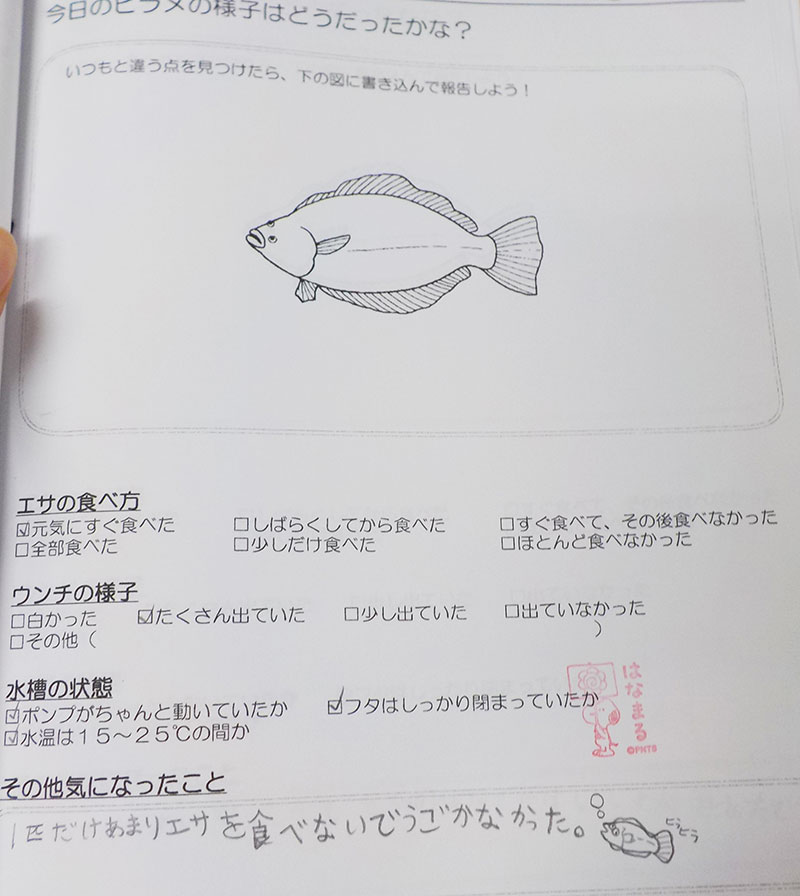 今日のヒラメの様子はどうだったかな？
いつもと違う点を見つけたら、下の図に書き込んで報告しよう！
エサの食べ方
☑元気にすぐ食べた　□しばらくしてから食べた　□すぐ食べて、その後食べなかった
□全部食べた　□少しだけ食べた　□ほとんど食べなかった
ウンチの様子
□白かった　☑たくさん出ていた　□少し出ていた　□出ていなかった
□その他（　　　）
水槽の状態
☑ポンプがちゃんと動いていたか　☑フタはしっかり閉まっていたか
☑水温は１５～２５℃の間か
はなまる
©PNTS
その他気になったこと
1匹だけあまりエサを食べないでうごかなかった。
ヒラヒラ